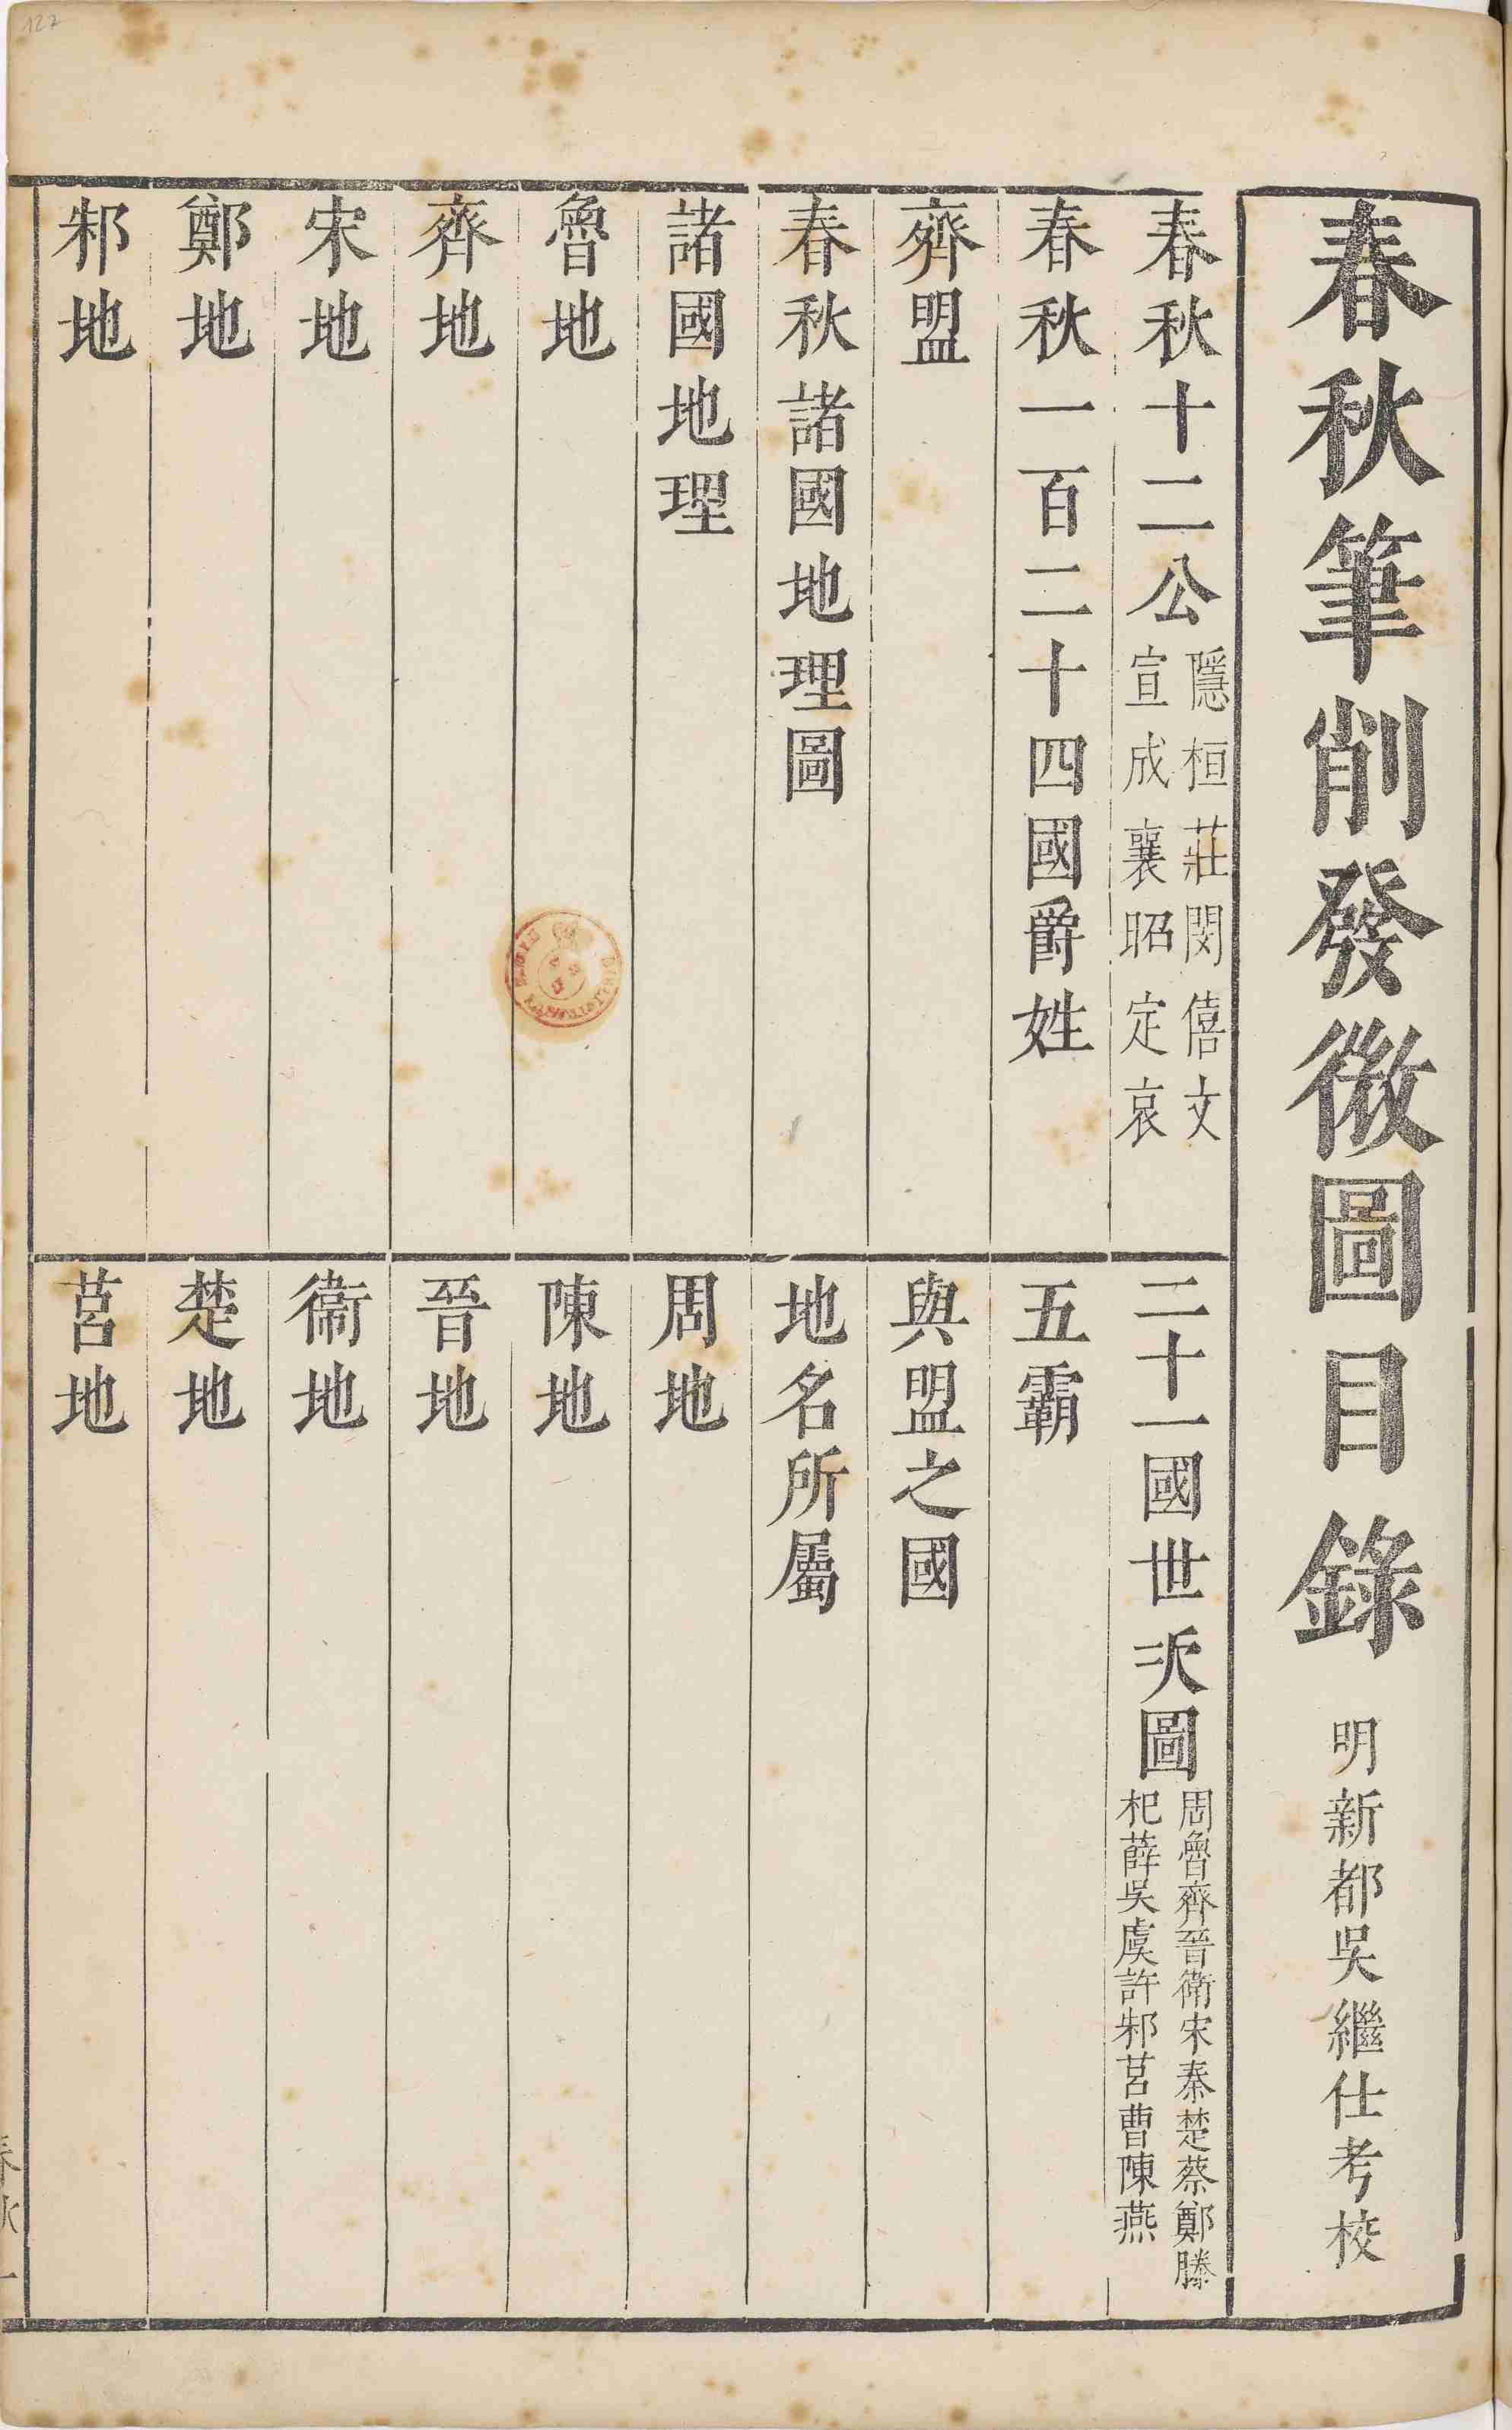 春秋筆削發微圖目錄 明新都吳繼仕考校
春秋十二公 隱桓莊閔僖文
宣成襄昭定哀
春秋一百二十四國爵姓
齊盟
春秋諸國地理圖
諸國地理
魯地
齊地
宋地
鄭地
邾地
二十一國世次圖 周魯齊晉衛宋秦楚蔡鄭滕
杞薛吳虞許邾莒曹陳燕
五霸
與盟之國
地名所屬
周地
陳地
晉地
衞地
楚地
莒地
春秋 一
127